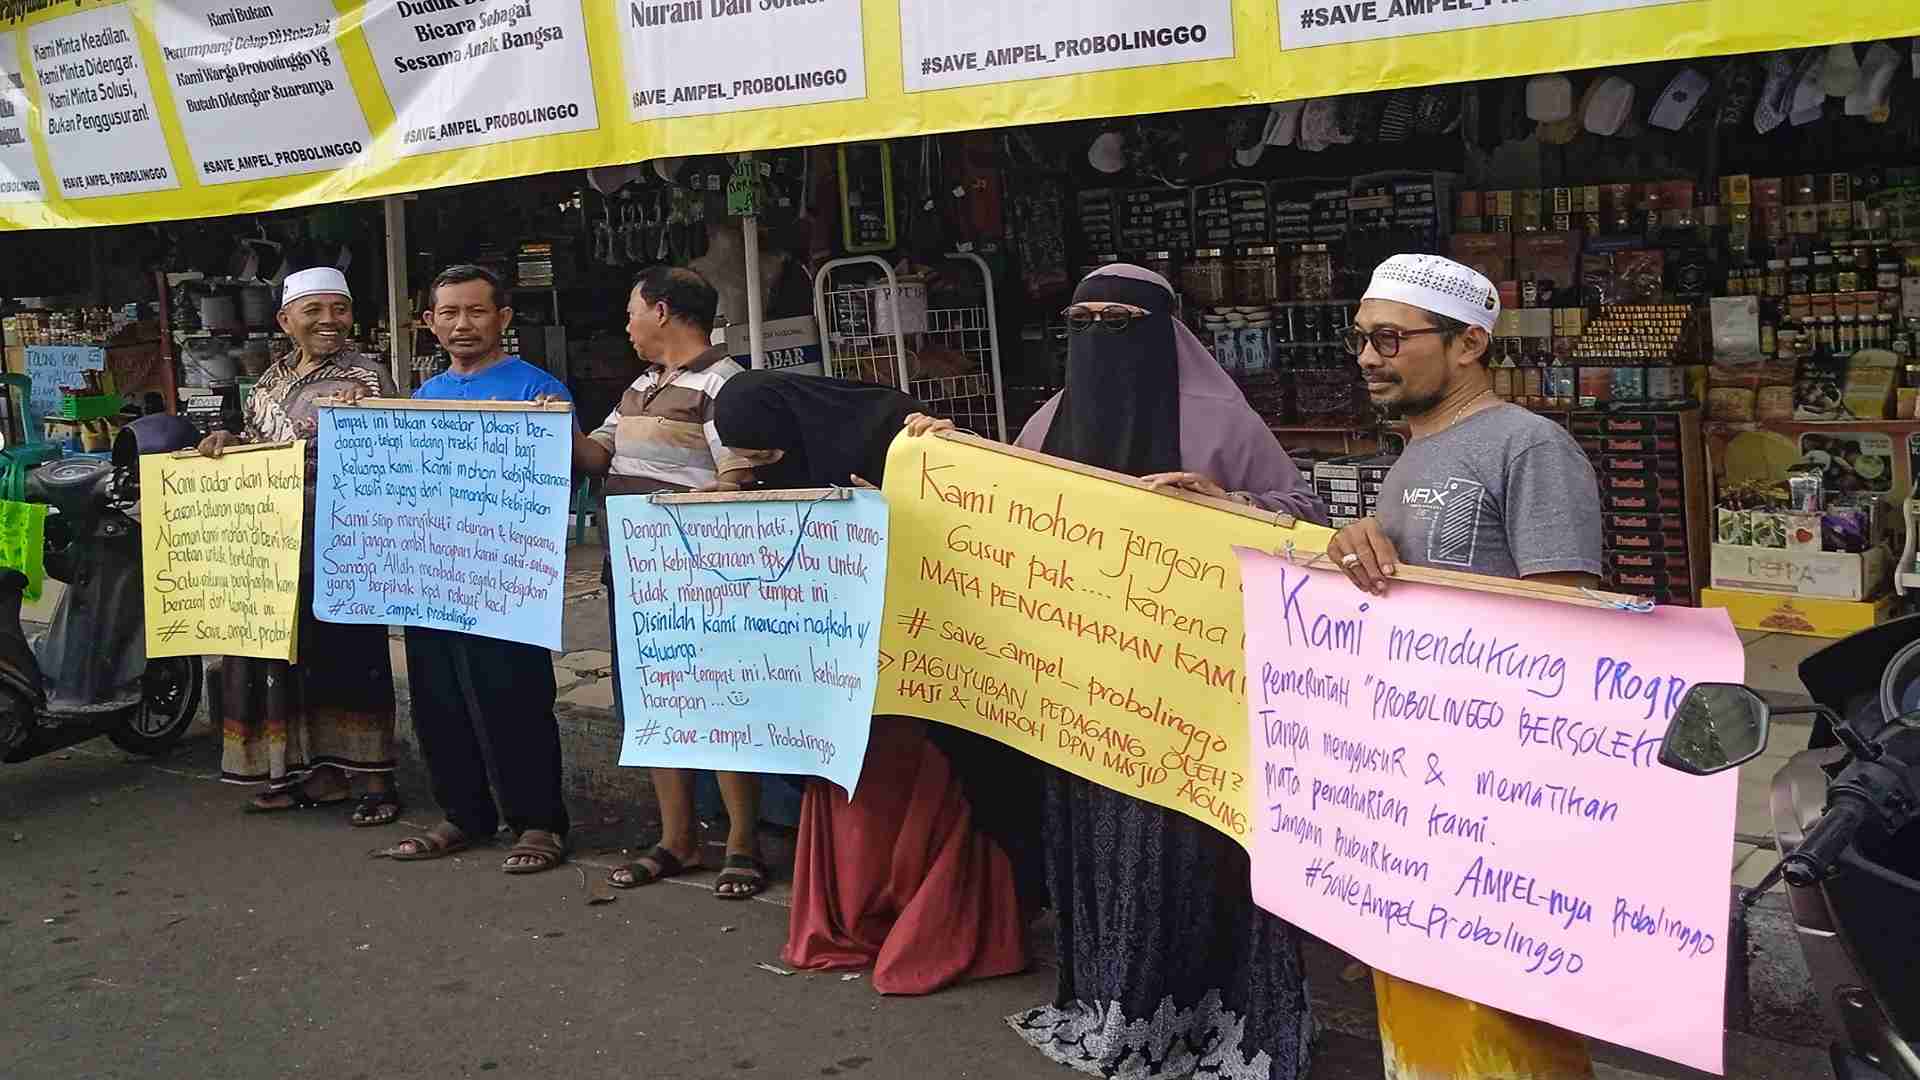 Kami Minta Keadilan,
Kami Minta Didengar,
Kami Minta Solusi,
Bukan Penggusuran!
#SAVE_AMPEL_PROBOLINGGO
Kami Bukan
Penumpang Gelap Di Kota Ini
Kami Warga Probolinggo Yg
Butuh Didengar Suaranya
#SAVE_AMPEL_PROBOLINGGO
Duduk
Bicara Sebagai
Sesama Anak Bangsa
#SAVE_AMPEL_PROBOLINGGO
Nurani Dan
#SAVE_AMPEL_PROBOLINGGO
#SAVE_AMPEL_PROBOLINGGO
#SAVE_AMPEL
Kami sadar akan
aturan yang ada.
Namun kami mohon diberi
patan untuk bertahan
Satu-satunya penghasilan kami
berasal dari tempat ini
# Save_ampel_proboli
Tempat ini bukan sekedar lokasi ber-
dagang, tetapi ladang rezeki halal bagi
keluarga kami. Kami mohon kebijaksanaan
& kasih sayang dari pemangku kebijakan
Kami siap mengikuti aturan & kerjasama,
asal jangan ambil harapan kami satu-satunya
Semoga Allah membalas segala kebijakan
yang berpihak kpd rakyat kecil
#save_ampel_probolinggo
Dengan kerendahan hati, kami memo-
hon kebijaksanaan Bpk/Ibu untuk
tidak menggusur tempat ini.
Disinilah kami mencari nafkah u/
keluarga.
Tanpa tempat ini, kami kehilangan
harapan...
#save-ampel_Probolinggo
Kami mohon jangan
Gusur pak .... karena
MATA PENCAHARIAN KAMI
# save_ampel_probolinggo
PAGUYUBAN PEDAGANG OLEH²
HAJI & UMROH DPN MASJID AGUNG
Kami mendukung PROGR
PEMERINTAH "PROBOLINGGO BERSOLEK
Tanpa menggusur & mematikan
mata pencaharian kami.
Jangan buburkan AMPEL-nya Probolinggo
#SaveAmpel_Probolinggo
MAX
ABAR
DOPA